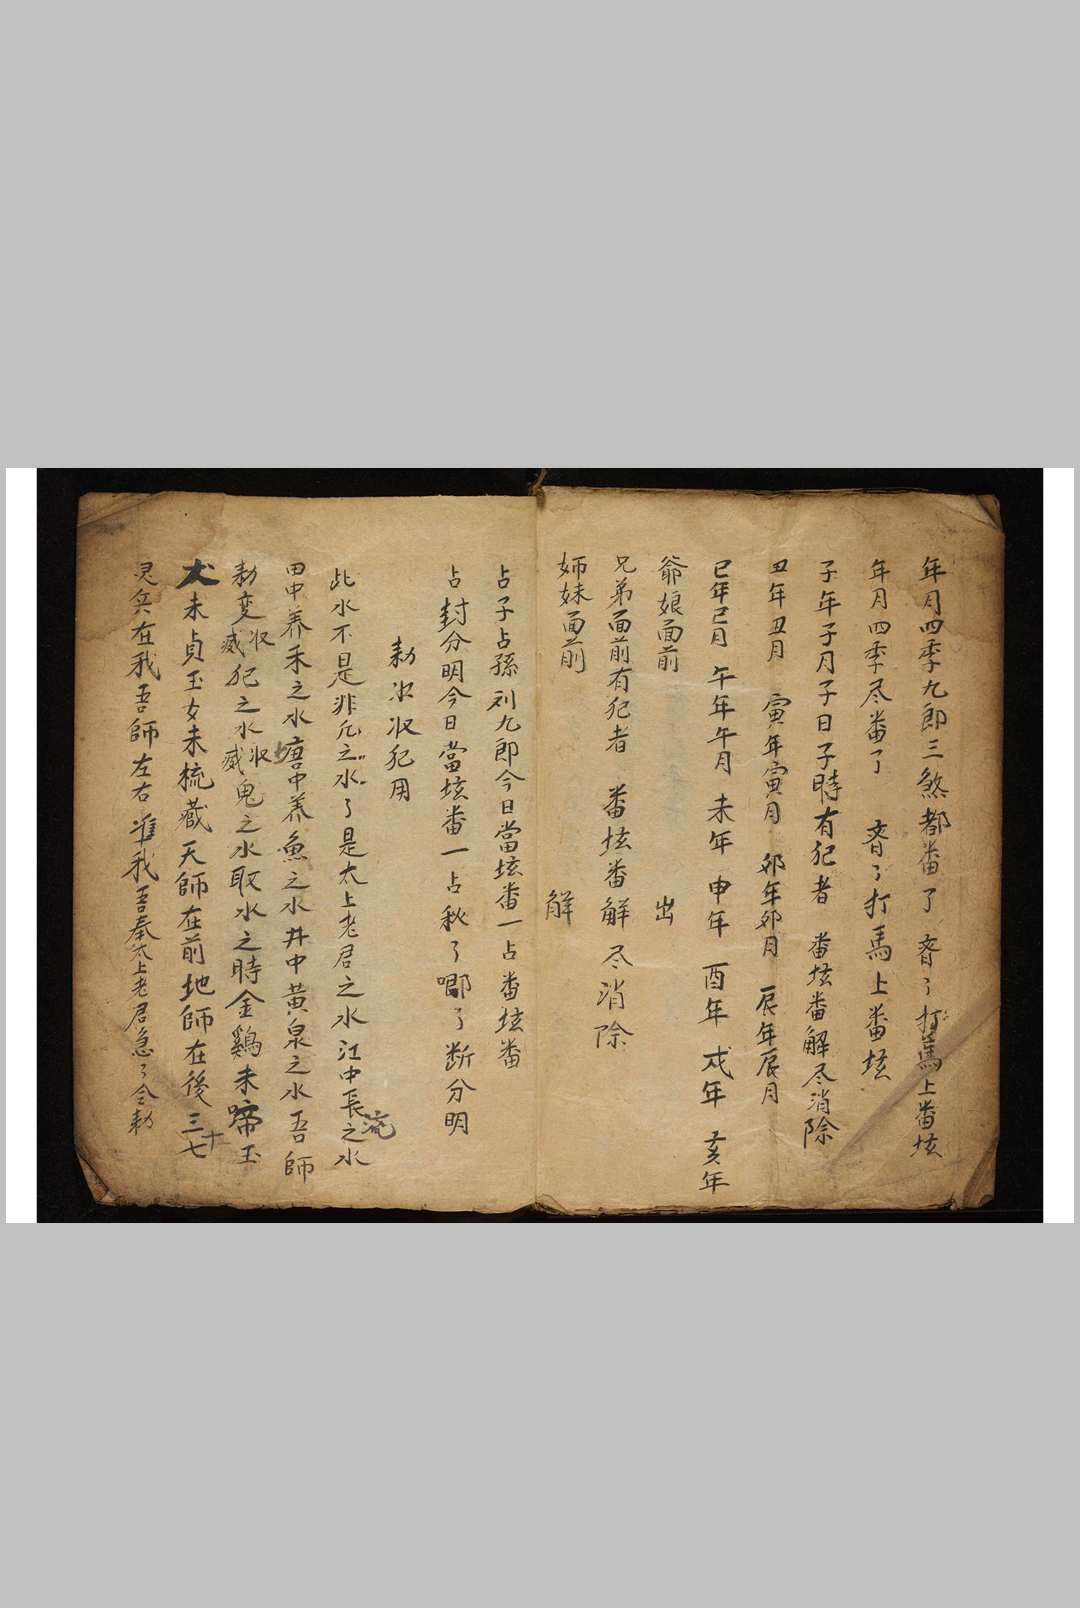 年月四季九郎三煞都番了 斉〻打馬上番垓
年月四季尽番了 斉〻打馬上番垓
子年子月子日子時有犯者 番垓番解尽消除
丑年丑月 寅年寅月 卯年卯月 辰年辰月
巳年巳月 午年午月 未年 申年 酉年 戍年 亥年
爺娘面前 出
兄弟面前有犯者 番垓番解尽消除
姉妹面前 解
占子占孫列九郎今日當垓番一占番垓番
占封分明今日當垓番一占秋了唧了断分明
勅水收犯用
此水不是非凡之〻水了是太上老君之水江中長流之水
田中养禾之水塘中养魚之水井中黄泉之水吾師
勅変收犯之水收鬼之水取水之時金鷄未啼玉
犬未貞玉女未梳藏天師在前地師在後三十七
灵兵在我吾師左右準我吾奉太上老君急〻令勅